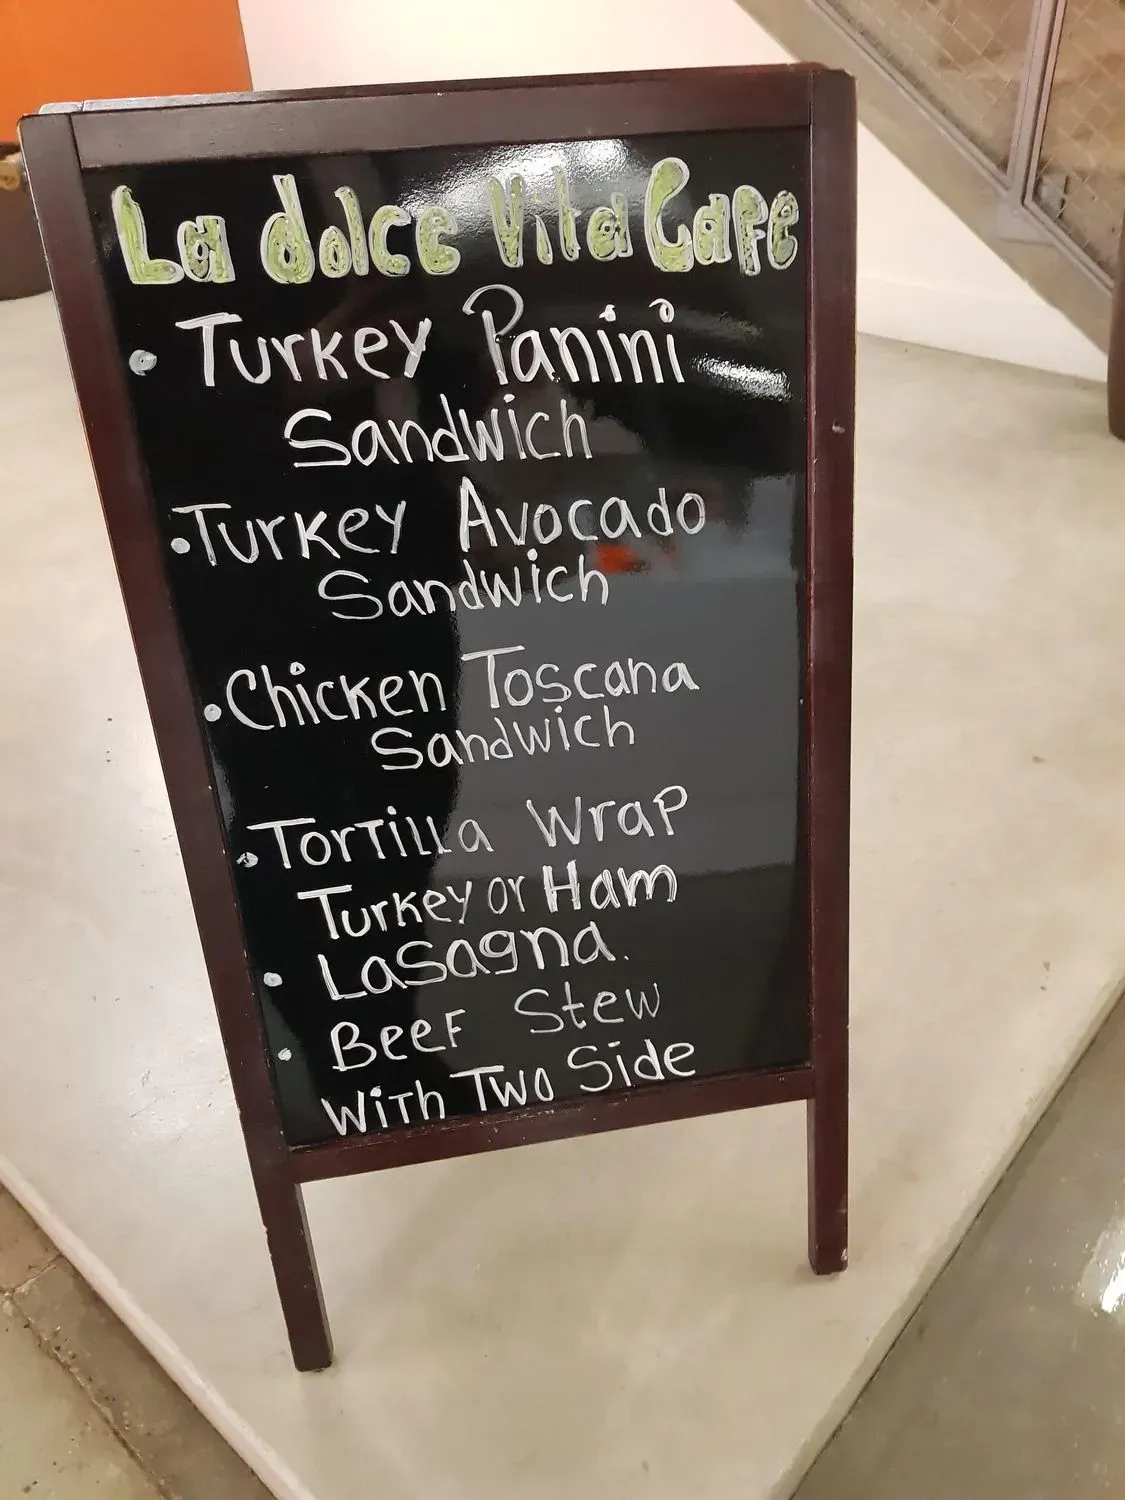 La dolce Vita Cafe
• Turkey Panini
Sandwich
• Turkey Avocado
Sandwich
• Chicken Toscana
Sandwich
• Tortilla Wrap
Turkey or Ham
• Lasagna.
• Beef Stew
With Two Side